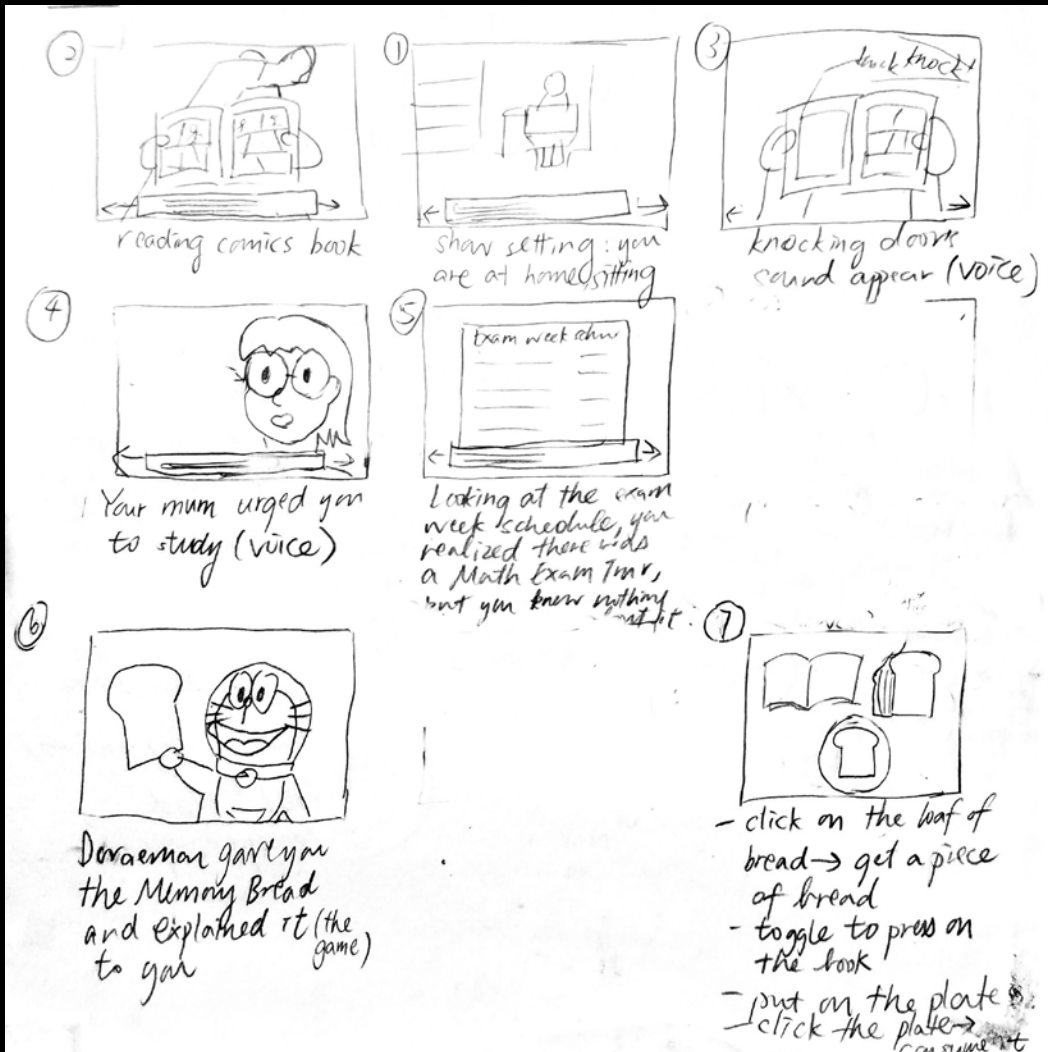 ②
reading comics book
①
show setting: you
are at home sitting
③
knock knock
knocking doors
sound appear (voice)
④
Your mum urged you
to study (voice)
⑤
Exam week
Looking at the exam
week schedule, you
realized there was
a Math Exam Tmr,
but you knew nothing
it.
⑥
Doraemon gave you
the Memory Bread
and explained it (the
game)
to you
⑦
- click on the loaf of
bread → get a piece
of bread
- toggle to press on
the book
- put on the plate
- click the plate →
consume it